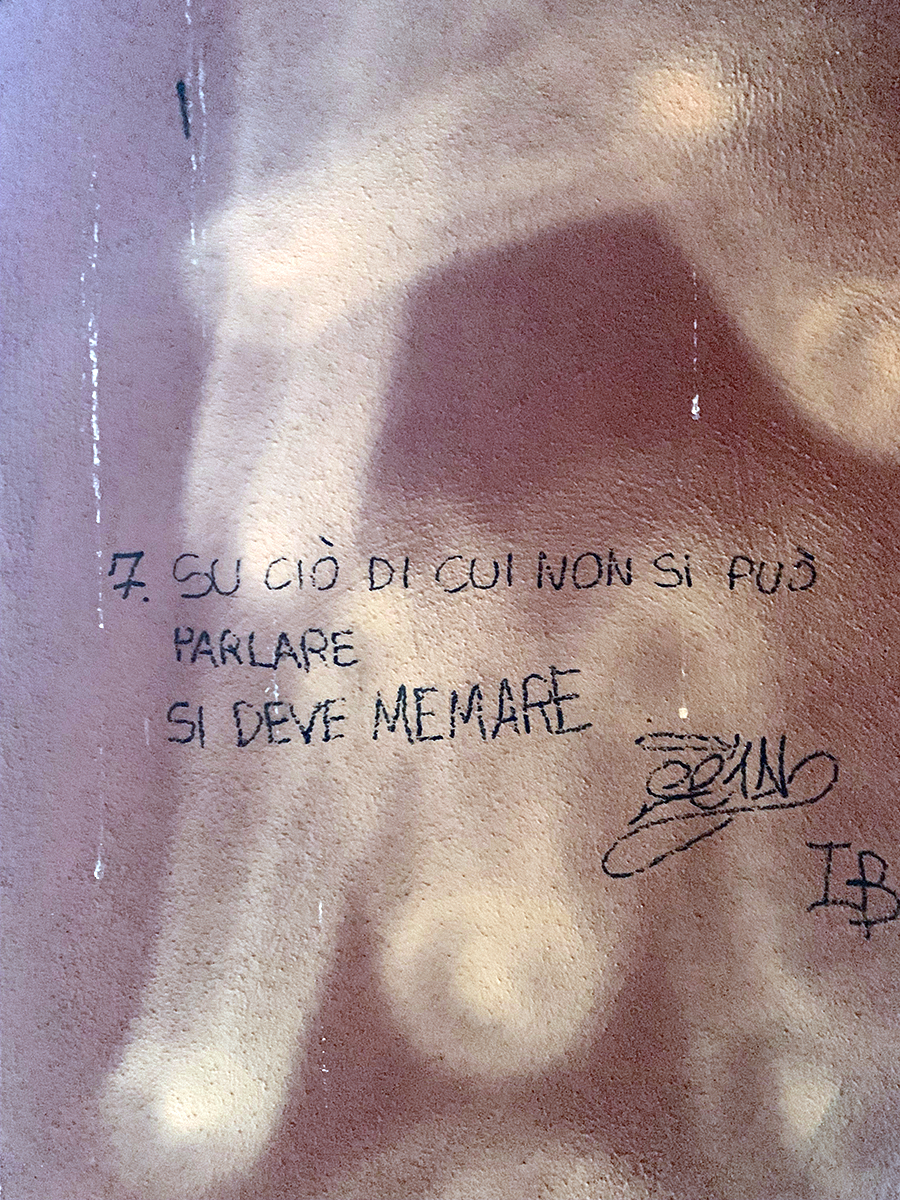 7. SU CIÒ DI CUI NON Si PUÒ
PARLARE
SI DEVE MEMARE
IB